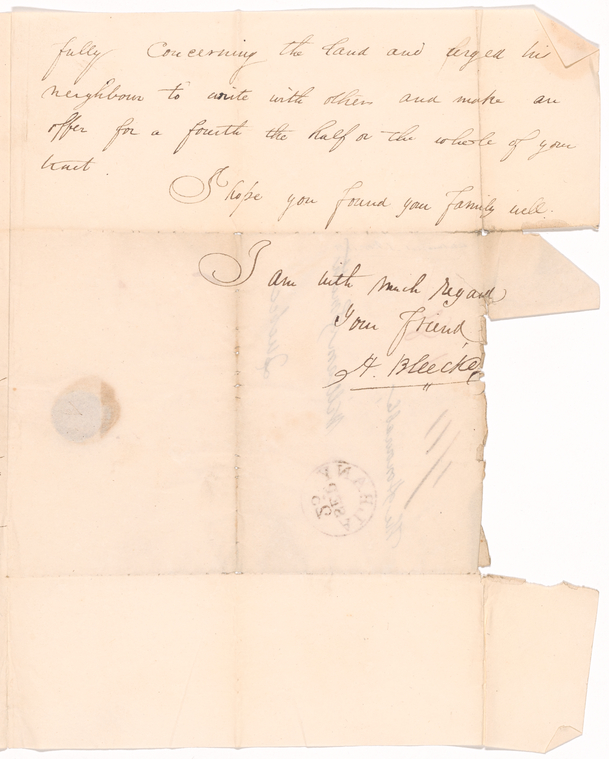 fully Concerning the land and urged his
neighbour to unite with others and make an
offer for a fourth the half or the whole of your
tract.
I hope you found your family well.
I am with much regard
Your friend
H. Bleecker
ALBANY
FEB
The Honorable
William